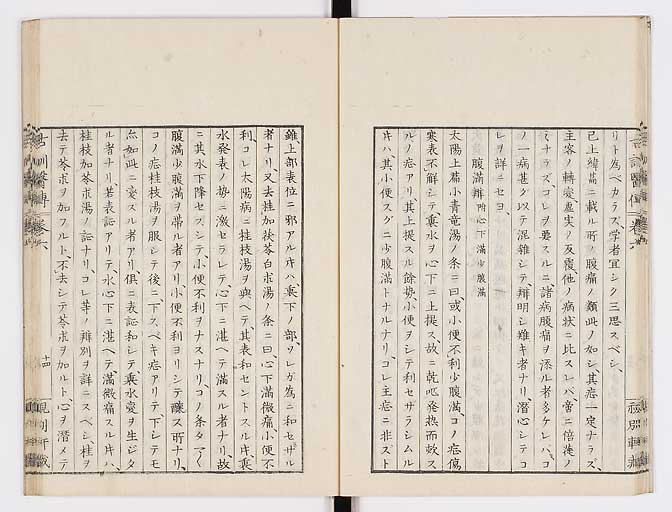 リト為ベカラズ、学者宜シク三思スベシ、
已上緯篇ニ載ル所ノ腹痛ノ類此ノ如シ其症一定ナラズ、
主客ノ轉変、虚実ノ反覆、他ノ病状ニ比スレバ啻ニ倍蓰ノ
ミナラズ、コレヲ要スルニ諸病腹痛ヲ添ル者多ケレバ、コ
ノ一病甚ダ以テ混雑シテ、辨明シ難キ者ナリ、潛心シテコ
レヲ詳ニセヨ、
腹滿辨 附心下滿少腹滿
太陽上篇小青竜湯ノ条ニ曰或小便不利少腹滿、コノ症傷
寒表不解シテ裏水ヲ心下ニ上提ス、故ニ乾嘔発熱而欬ス
ルノ症アリ其上提スル餘勢小便ヲシテ利セザラシムル
トキハ其小便スグニ少腹滿トナルナリ、コレ主症ニ非ズト
雖上部表位ニ邪アルトキハ、裏下ノ部、ソレガ為ニ和セザル
者ナリ、又去桂加茯苓白朮湯ノ条ニ曰、心下滿微痛小便不
利コレ太陽病ニ桂枝湯ヲ與ヘテ、其表和セントスルトキ、裏
水発表ノ勢ニ激セラレテ、心下ニ湛ヘテ滿スル者ナリ、故
ニ其水下降セズシテ、小便不利ヲナスナリ、コノ条タマ〱
腹滿少腹滿ヲ帶ル者アリ、小便不利ヨリシテ釀ス所ナリ、
コノ症桂枝湯ヲ服シテ後ニ、下スベキ症アリテ、下シテモ
亦如此ニ変スル者アリ、俱ニ表証和シテ裏水変ヲ生ジタ
ル者ナリ、若表証アリテ、水心下ニ湛ヘテ、滿微痛スルトキハ、
桂枝加苓朮湯ノ証ナリ、コレ等ノ辨別ヲ詳ニスベシ、桂ヲ
去テ苓朮ヲ加フルト、不去シテ苓朮ヲ加ルト、心ヲ潛メテ
十四